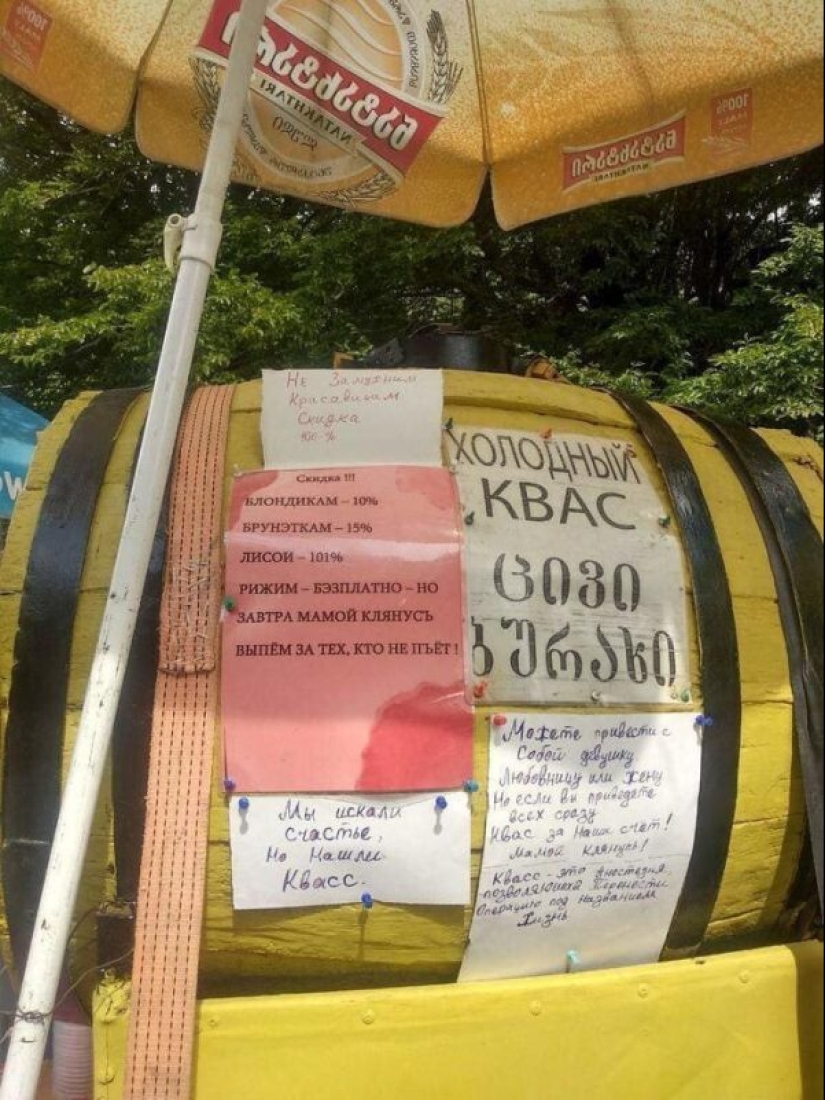 100%
ნატახტარი
NATAKHTARI
ნატახტარი
NATAKHTARI
100%
Не Замужним
Красавицам
Скидка
100-%
Скидка !!!
БЛОНДИКАМ – 10%
БРУНЭТКАМ – 15%
ЛИСОИ – 101%
РИЖИМ – БЭЗПЛАТНО – НО
ЗАВТРА МАМОЙ КЛЯНУСЪ
ВЫПЁМ ЗА ТЕХ, КТО НЕ ПЪЁТ !
ХОЛОДНЫЙ
КВАС
ცივი
ბურახი
Мы искали
счастье,
Но Нашли
Квасс.
Можете привести с
Собой девушку
Любовницу или Жену
Но если вы приведёте
всех сразу
Квас за Наш счет!
Мамой Клянусь!
Квасс - это Анестезия,
позволяющая Перенести
Операцию под Названием
Жизнь